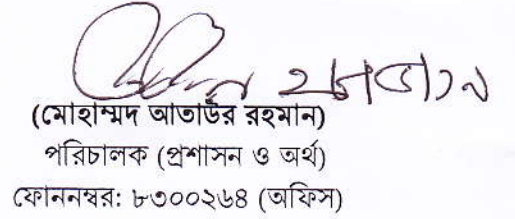 (মোহাম্মদ আতাউর রহমান)
পরিচালক (প্রশাসন ও অর্থ)
ফোননম্বর: ৮৩০০২৬৪ (অফিস)